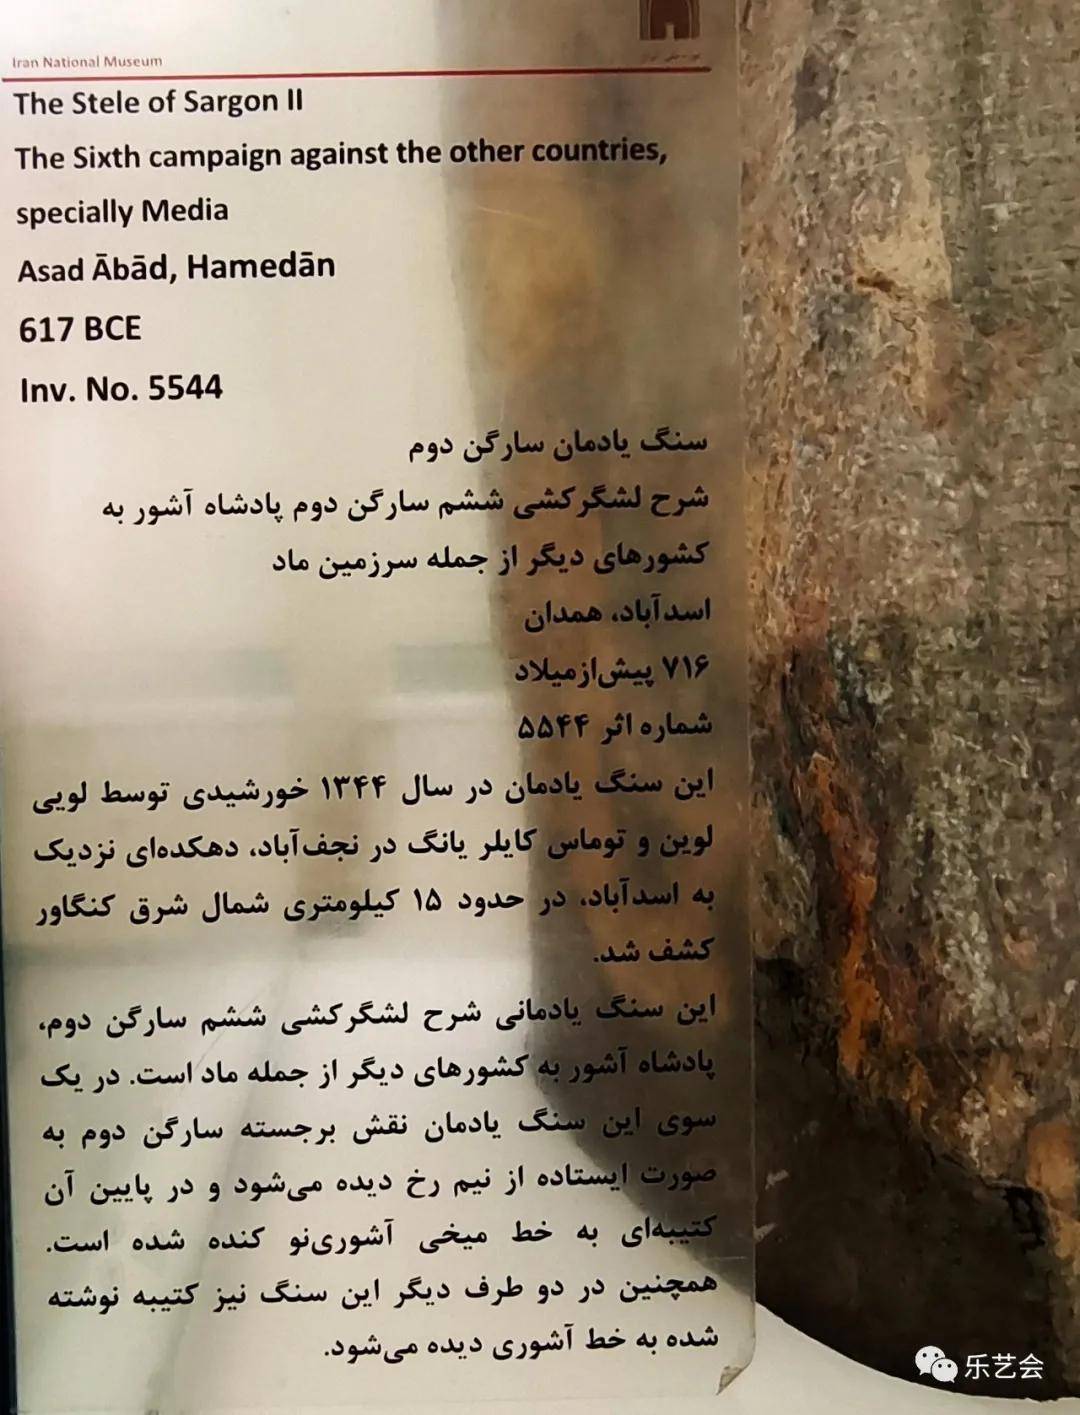 Iran National Museum
The Stele of Sargon II
The Sixth campaign against the other countries,
specially Media
Asad Ābād, Hamedān
617 BCE
Inv. No. 5544
سنگ یادمان سارگن دوم
شرح لشگرکشی ششم سارگن دوم پادشاه آشور به
کشورهای دیگر از جمله سرزمین ماد
اسدآباد، همدان
۷۱۶ پیش‌ازمیلاد
شماره اثر ۵۵۴۴
این سنگ یادمان در سال ۱۳۴۴ خورشیدی توسط لویی
لوین و توماس کایلر یانگ در نجف‌آباد، دهکده‌ای نزدیک
به اسدآباد، در حدود ۱۵ کیلومتری شمال شرق کنگاور
کشف شد.
این سنگ یادمانی شرح لشگرکشی ششم سارگن دوم،
پادشاه آشور به کشورهای دیگر از جمله ماد است. در یک
سوی این سنگ یادمان نقش برجسته سارگن دوم به
صورت ایستاده از نیم رخ دیده می‌شود و در پایین آن
کتیبه‌ای به خط میخی آشوری‌نو کنده شده است.
همچنین در دو طرف دیگر این سنگ نیز کتیبه نوشته
شده به خط آشوری دیده می‌شود.
乐艺会